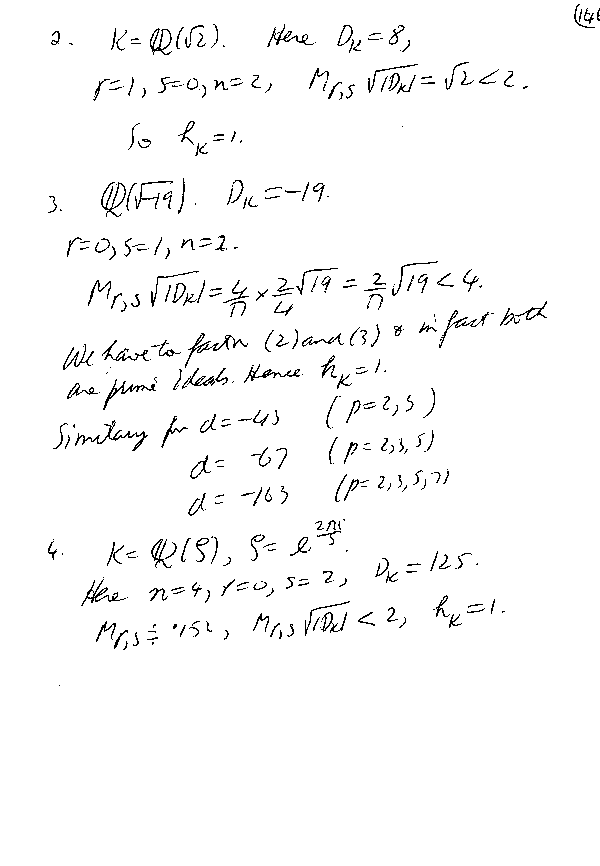 (146
2. K = ℚ(√2). Here D_K = 8,
r=1, s=0, n=2, M_{r,s} √|D_K| = √2 < 2.
So h_K = 1.
3. ℚ(√-19). D_K = -19.
r=0, s=1, n=2.
M_{r,s} √|D_K| = 4/π × 2/4 √19 = 2/π √19 < 4.
We have to factor (2) and (3) & in fact both
are prime ideals. Hence h_K = 1.
Similary for d = -43 (p=2,3)
d = -67 (p=2,3,5)
d = -163 (p=2,3,5,7)
4. K = ℚ(ζ), ζ = e^{2πi/5}.
Here n=4, r=0, s=2, D_K = 125.
M_{r,s} ≑ ·152, M_{r,s} √|D_K| < 2, h_K = 1.